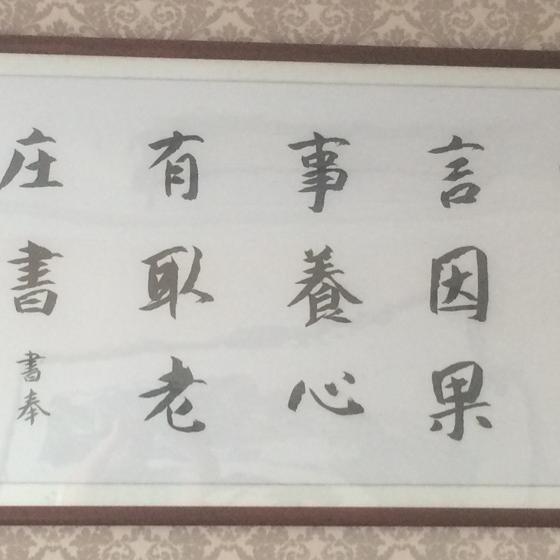 言因果
事養心
有取老
庄書書奉